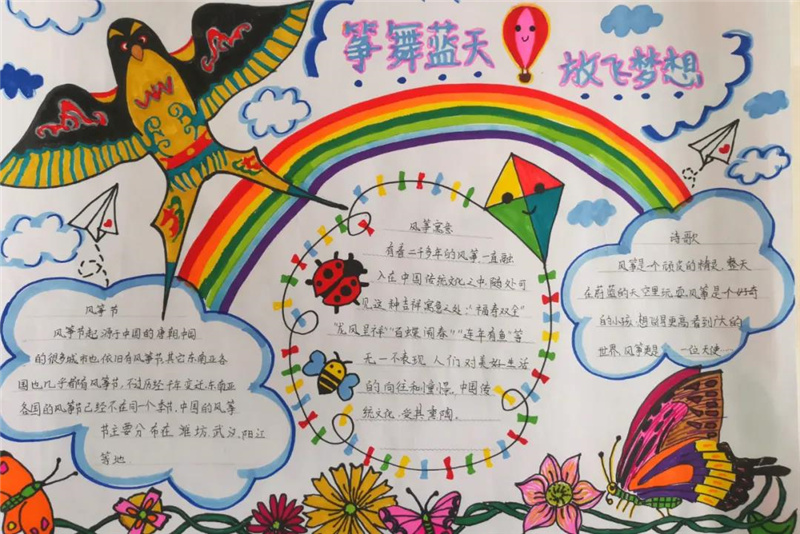 筝舞蓝天
放飞梦想
风筝节
风筝节起源于中国的唐朝.中国
的很多城市也依旧有风筝节.其它东南亚各
国也几乎都有风筝节,不过历经千年变迁,东南亚
各国的风筝节已经不在同一个季节,中国的风筝
节主要分布在潍坊.武汉.阳江
等地
风筝寓意
有着二千多年的风筝一直融
入在中国传统文化之中.随处可
见这种吉祥寓意之处:“福寿双全”
“龙凤呈祥”“百蝶闹春”“连年有鱼”等
无一不表现人们对美好生活
的向往和憧憬.中国传
统文化.受其熏陶.
诗歌
风筝是个顽皮的精灵,整天
在蔚蓝的天空里玩耍.风筝是个好奇
的小孩,想飞得更高看到广大的
世界.风筝更是一位天使